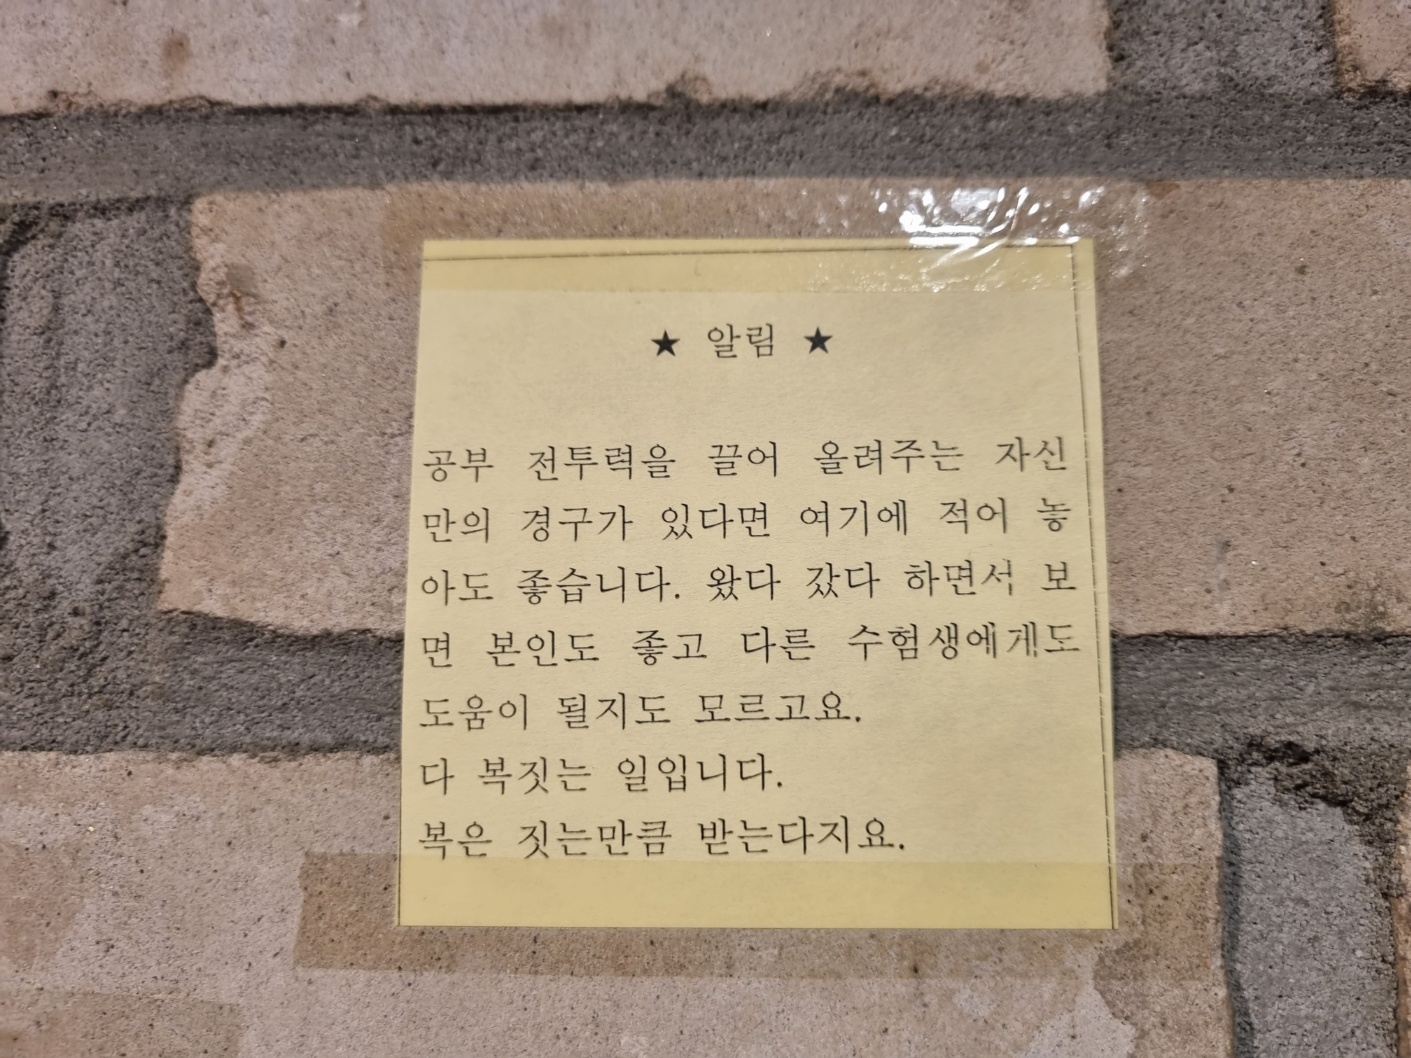 ★ 알림 ★
공부 전투력을 끌어 올려주는 자신
만의 경구가 있다면 여기에 적어 놓
아도 좋습니다. 왔다 갔다 하면서 보
면 본인도 좋고 다른 수험생에게도
도움이 될지도 모르고요.
다 복짓는 일입니다.
복은 짓는만큼 받는다지요.